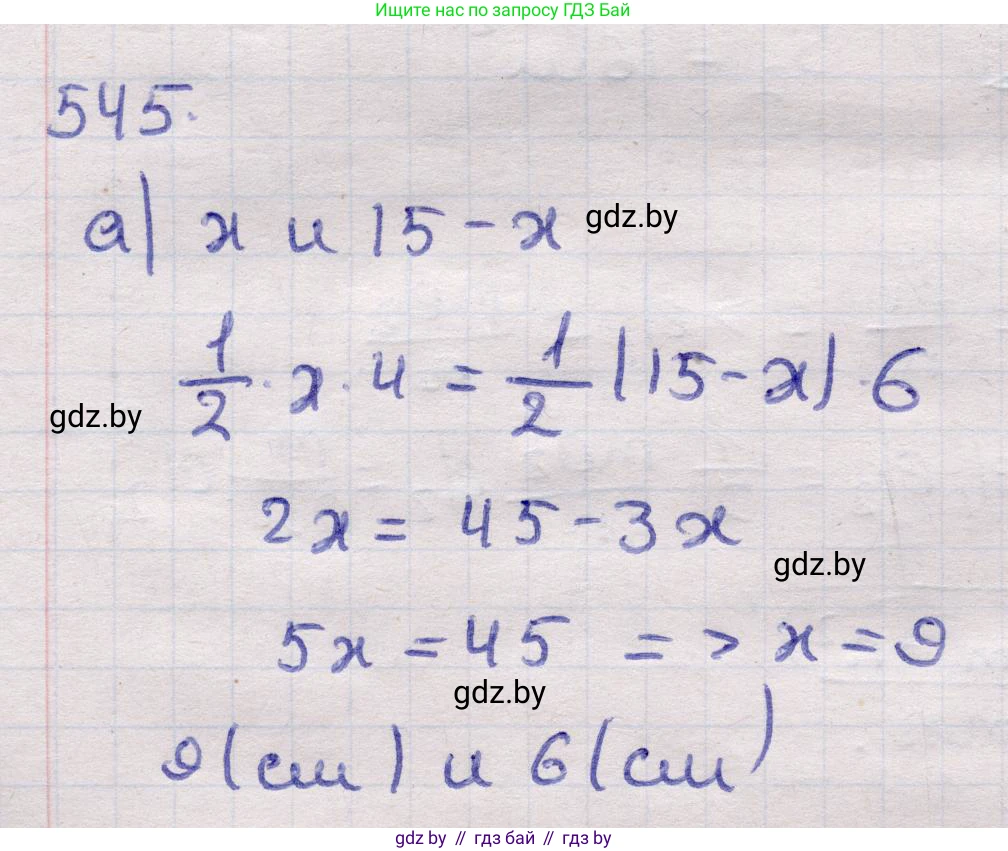 Ищите нас по запросу ГДЗ Бай
545.
а) x и 15 - x gdz.by
1/2 · x · 4 = 1/2 (15 - x) · 6
gdz.by
2x = 45 - 3x
gdz.by
5x = 45 => x = 9
gdz.by
9 (см) и 6 (см)
gdz.by // гдз бай // gdz.by